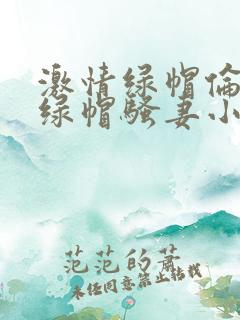 激情绿帽倫
绿帽騷妻小
范范的萧
未经同意禁止转载